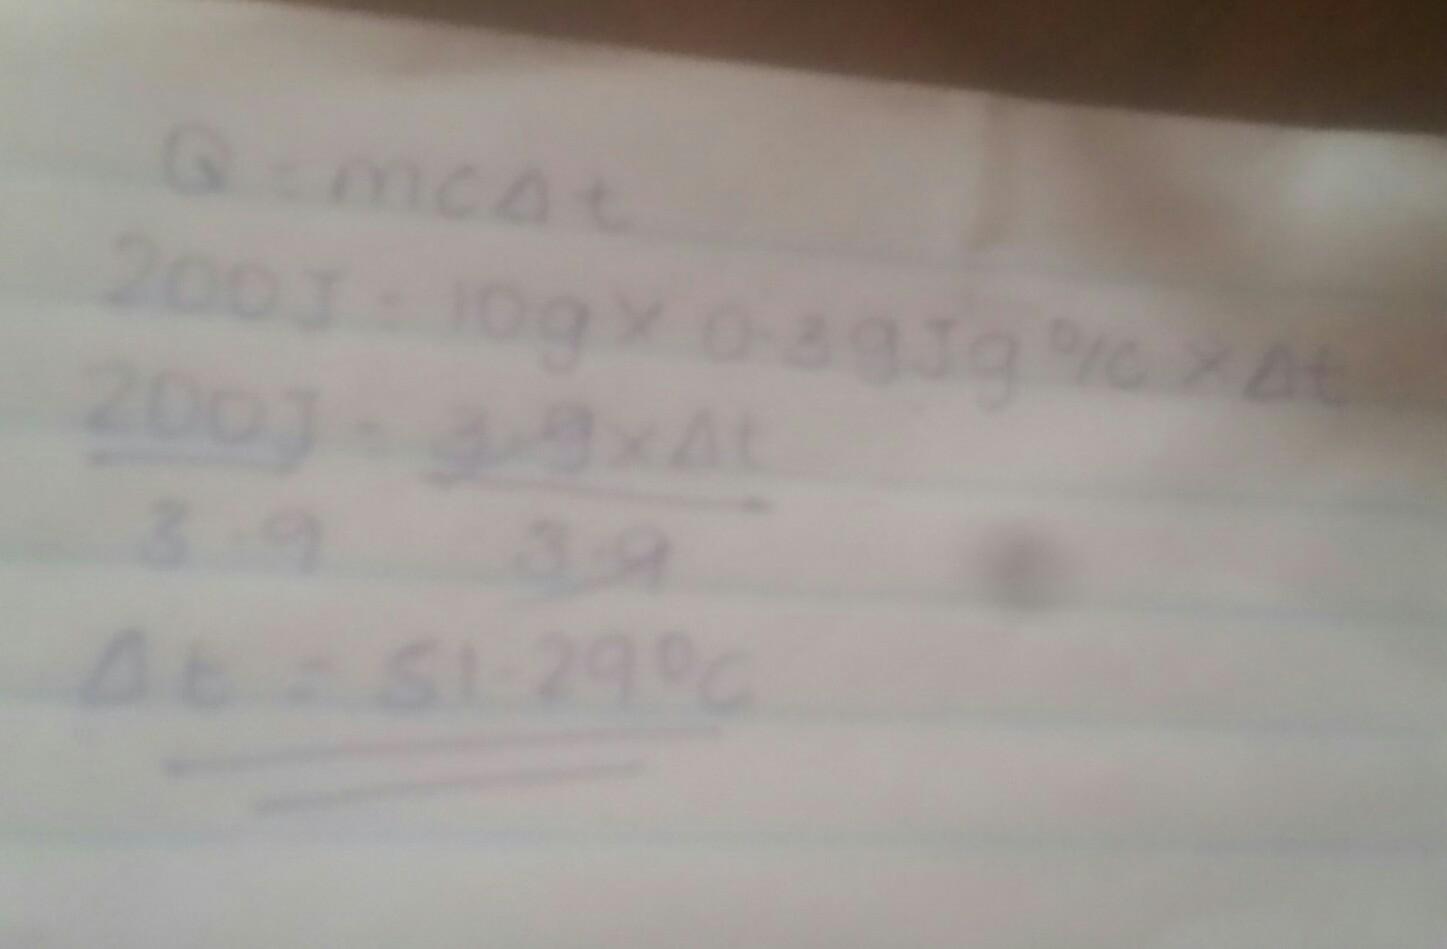 Q = mcΔt
200J = 10g × 0.39Jg°/c × Δt
200J = 3.9×Δt
3.9 3.9
Δt = 51.29°c